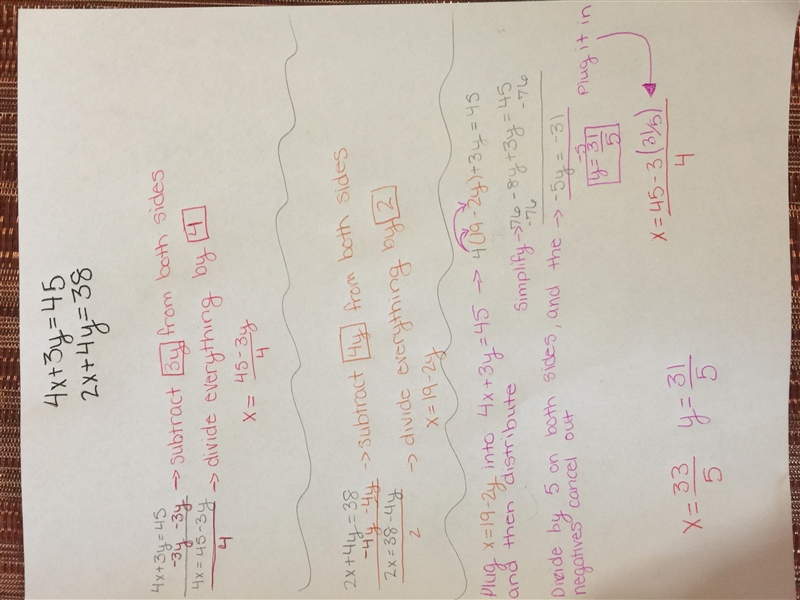 4x+3y=45
2x+4y=38
4x+3y=45
-3y -3y → subtract 3y from both sides
4x=45-3y → divide everything by 4
4
x = 45-3y
4
2x+4y=38
-4y -4y → subtract 4y from both sides
2x=38-4y → divide everything by 2
2
x=19-2y
Plug x=19-2y into 4x+3y=45 → 4(19-2y)+3y=45
and then distribute
Simplify → 76-8y+3y=45
-76 -76
Divide by 5 on both sides, and the → -5y = -31
negatives cancel out
-5
y=31
5
Plug it in
x=45-3(31/5)
4
x=33
5
y=31
5